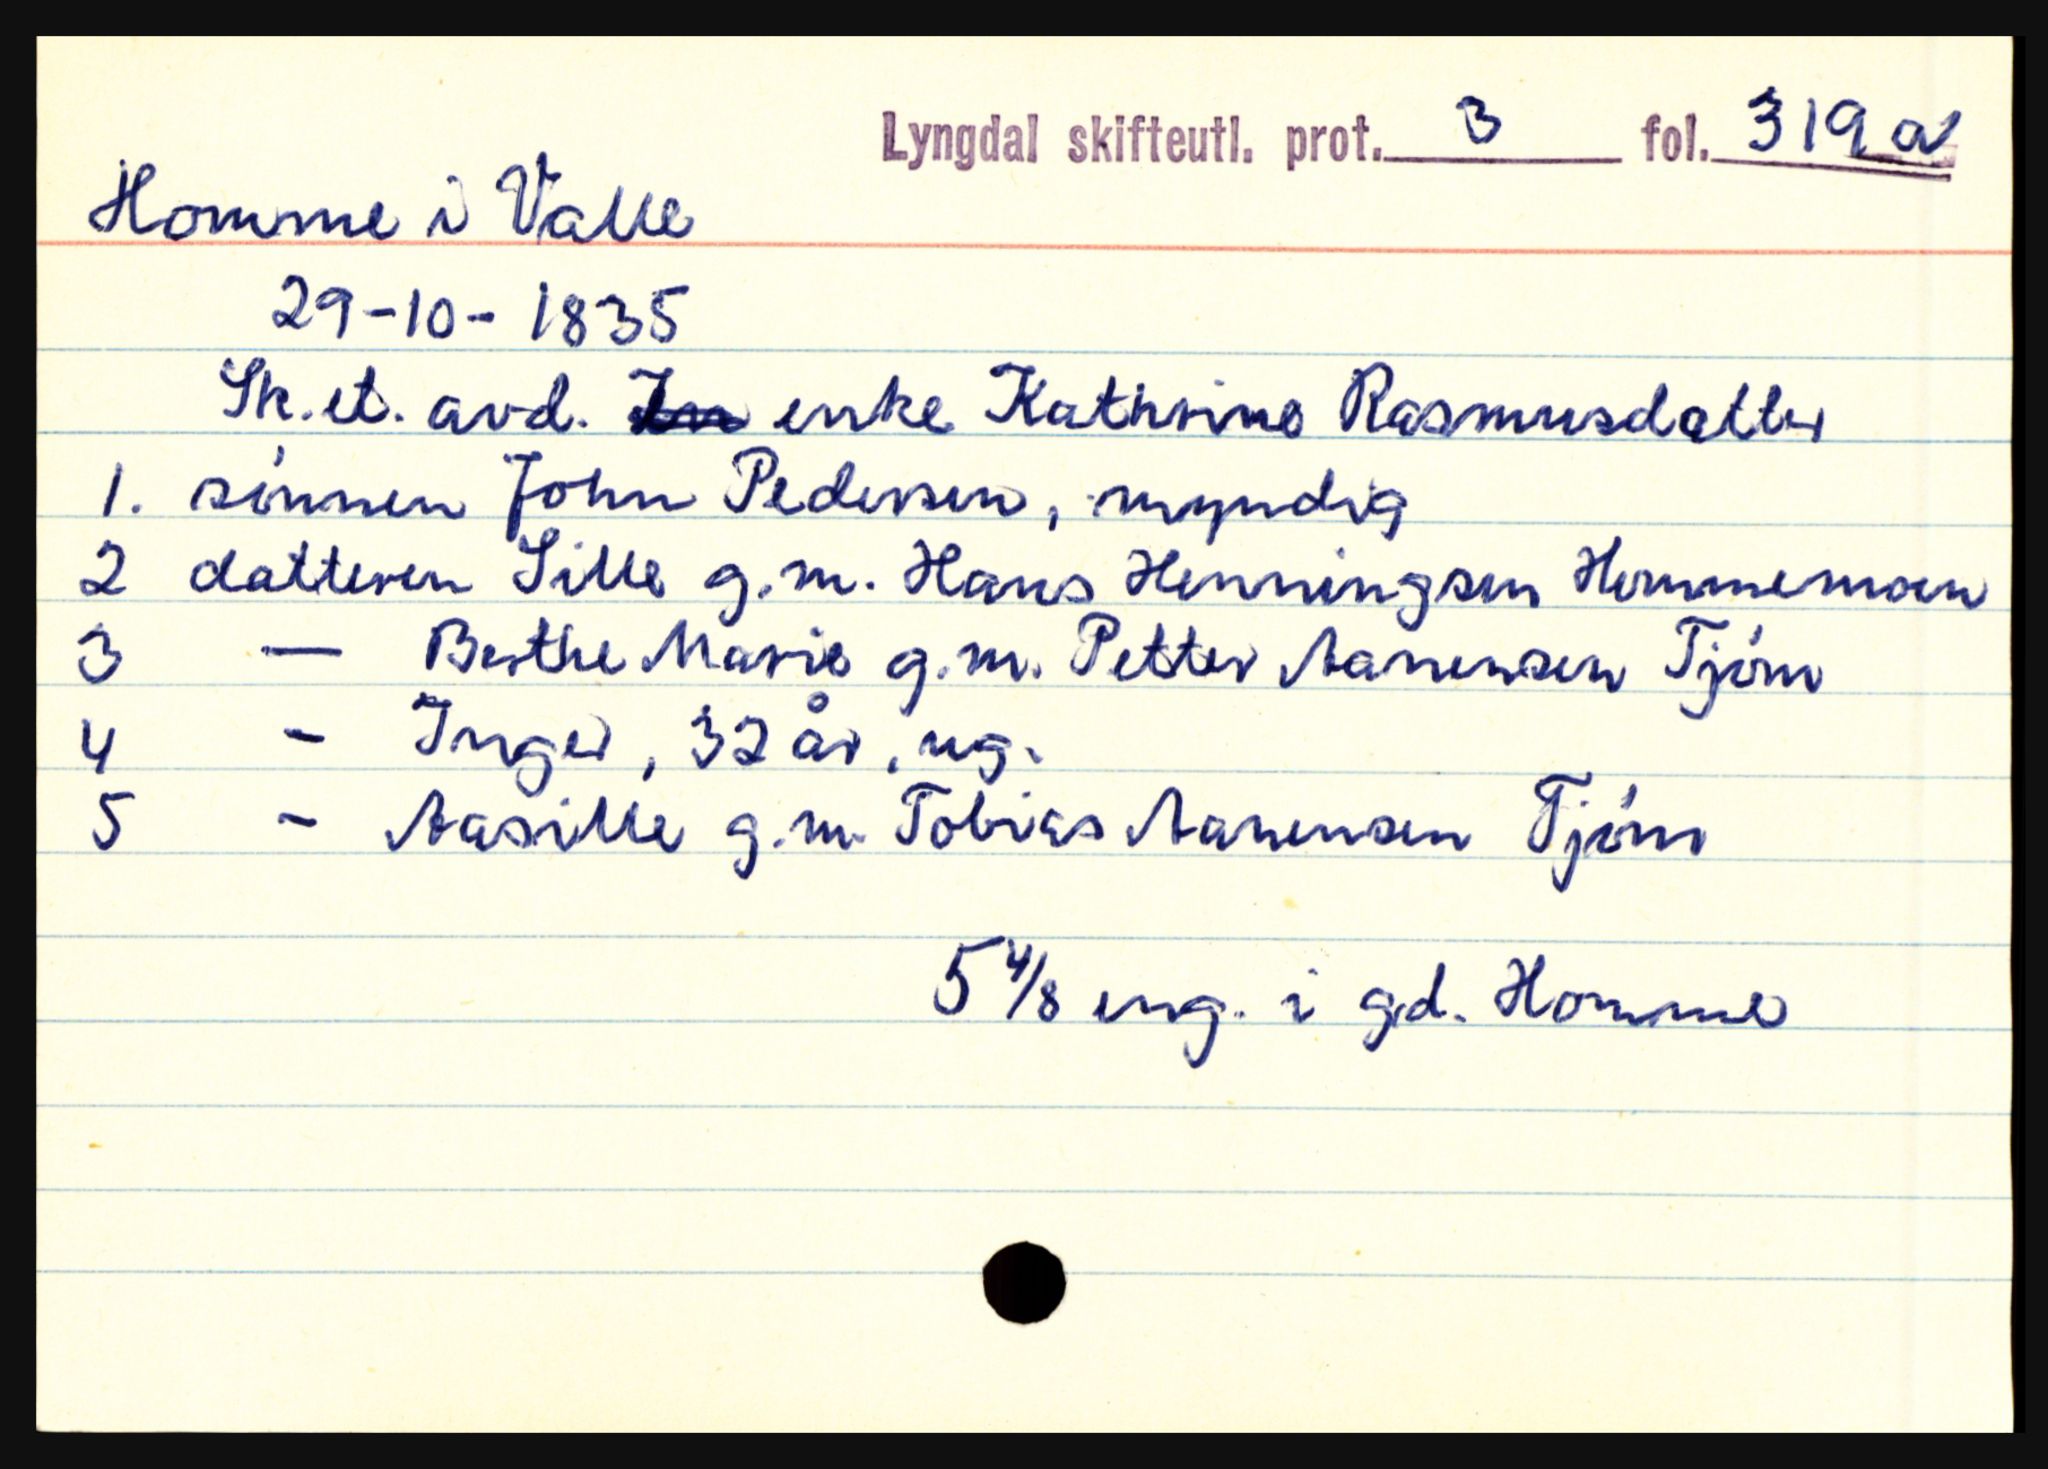 Lyngdal skifteutl. prot. 3 fol. 319 a
Homme i Valle
29-10-1835
Sk. et. avd. enke Kathrine Rasmusdatter
1. sónnen John Pedersen, myndig
2 datteren Sille g.m. Hans Henningsen Hommemoen
3 — Berthe Marie g.m. Petter Aanensen Tjóm
4 - Inger, 32 år, ug.
5 - Aasille g.m. Tobias Aanensen Tjóm
5 4/8 eng. i gd. Homme